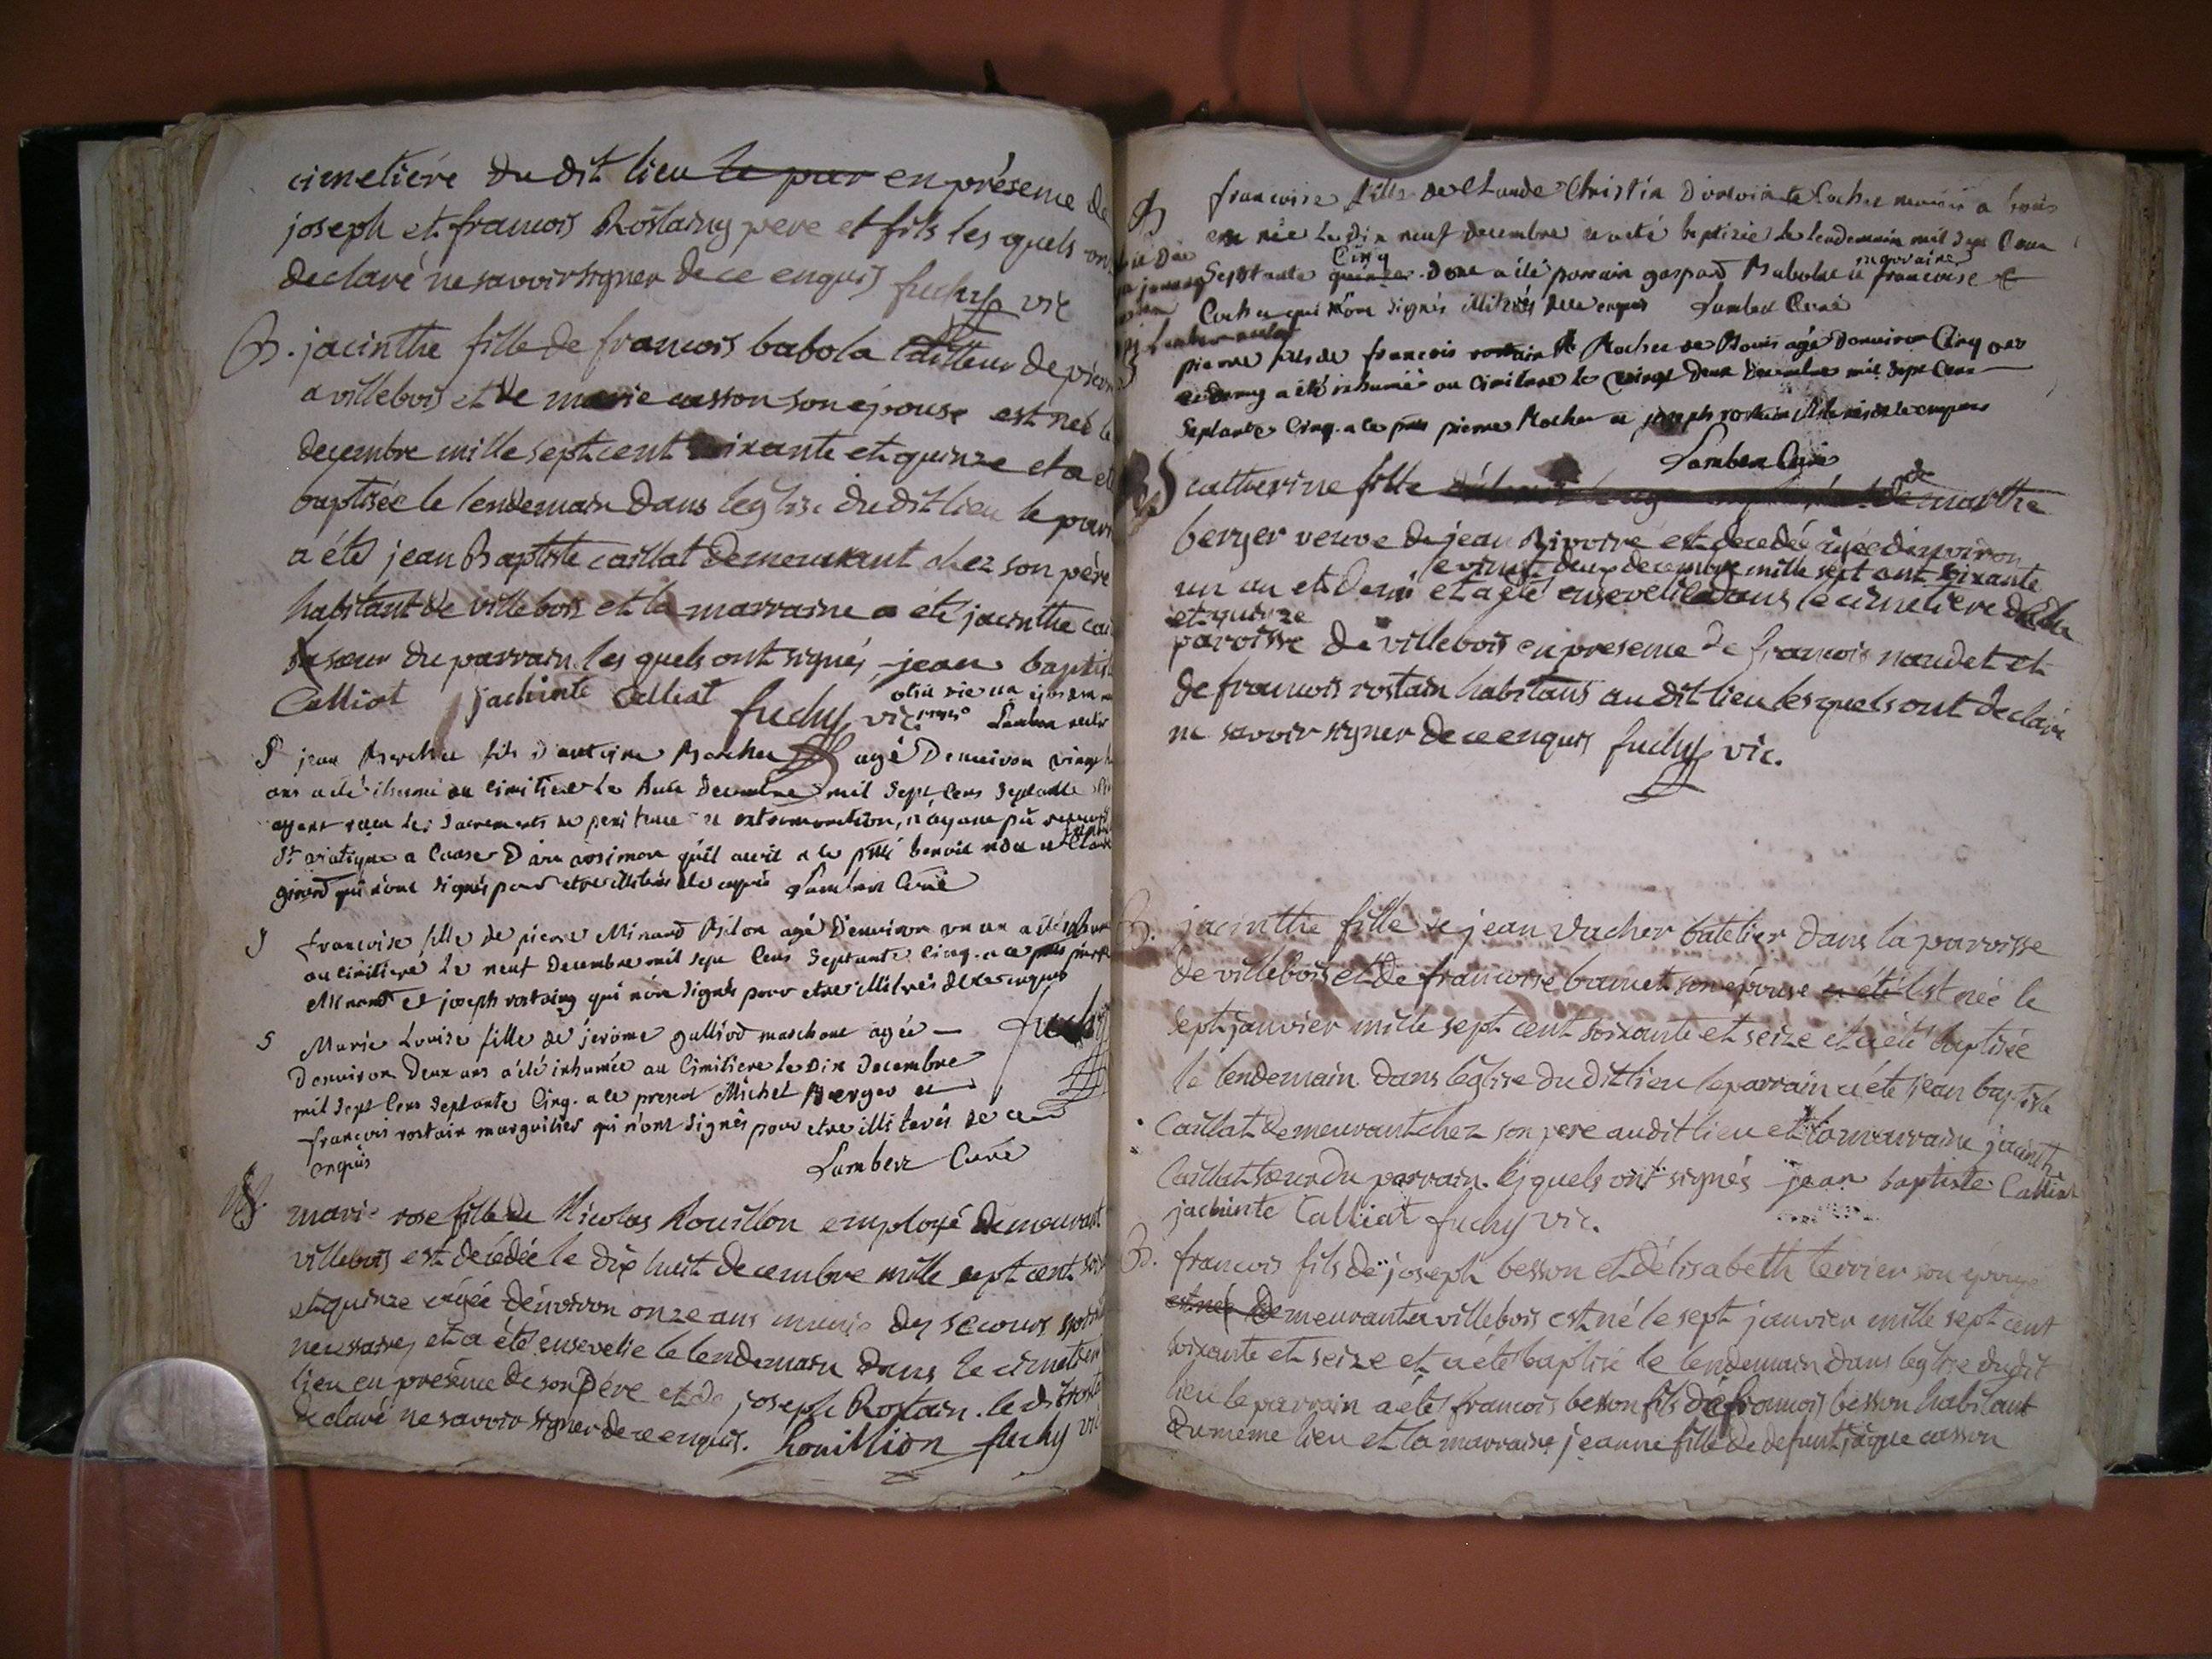 cimetiére du dit lieu le par en présence de
joseph et francois Rostaing pere et fils les quels on
declaré ne savoir signer de ce enquis fuchy vic
B. jacinthe fille de francois babola tailleur de pierre
a villebois et de marie casson son épouse est neé le
decembre mille sept cent soixante et quinze et a et
baptisée le lendemain dans leglise du dit lieu le parr
a été jean Baptiste caillat demeurant chez son pere
habitant de villebois et la marraine a été jacinthe cai
sœur du parrain les quels ont signés jean baptist
Calliat jachinte Calliat fuchy vic
S jean Bacher fils d'antoine Bacher agé Denuiron vingt
ans a été ihumé au cimitiere le huit Decembre mil Sept Cens Septante
ayant recu les Sacrements de penitence et extremonction, n'ayant pû
St viatique a Cause D'un qu'il avoit benoit
girod qui n'ont signés pour etre illiterés de ce enquis Lambert Curé
S francoise fille de pierre Minand agé D'enuiron un an a été
au cimitiere le neuf Decembre mil sept Cens Septante Cinq. a ce pnts pierre
Minand et joseph rostaing qui n'ont signés pour etre illitrés de ce enquis
S Marie Louise fille de jerôme galliod marchant agée
Denuiron Deux ans a été inhumée au Cimitiere le Dix Decembre fuchy
mil Sept Cens Septante Cinq. a ce present Michel Berger et
françois rostain marguilier qui n'ont signés pour etre illiterés de ce
enquis Lambert Curé
S. marie rose fille de Nicolas Rouillon employé demeurant
villebois est décédée le dix huit decembre mille sept cent soix
et quinze agée dénviron onze ans munie des secours
necessaires et a été ensevelie le lendemain dans le cimetiere
lieu en présence de son Pére et de joseph Rostain. le dit rosta
declaré ne savoir signer de ce enquis. Rouillion fuchy vic
B francoise fille de Claude Christin
est née le Dix neuf decembre a été baptizée le lendemain mil Sept Cens
Cinq
Septante quinze. Dont a été parrain gaspard Babolat et francoise
marraine
qui n'ont signés illitrés de ce enquis Lambert Curé
pierre fils de francois Rocher de Bouis agé Denuiron Cinq ans
et demy a été inhumé au Cimitiere le vingt Deux Decembre mil Sept Cens
Septante Cinq. a ce pnts pierre Rocher et joseph rostain de ce enquis
Lambert Curé
S catherine fille de marthe
berger veuve de jean Rivoire est decedé agée dénviron
le vingt deux decembre mille sept cent soixante
un an et demi et a été ensevelie dans le cimetiere de la
et quinze
paroisse de villebois en presence de francois naudet et
de francois rostain habitans au dit lieu lesquels ont declaré
ne savoir signer de ce enquis fuchy vic.
B. jacinthe fille de jean vacher batelier dans la paroisse
de villebois et de francoise son épouse a été est née le
sept janvier mille sept cent soixante et seize et a été baptisée
le lendemain dans léglise du dit lieu le parrain a été jean baptiste
Caillat demeurant chez son pere au dit lieu et la marraine jacinthe
Caillat sœur du parrain. lesquels ont signés jean baptiste Calliat
jachinte Calliat fuchy vic.
B. francois fils de joseph besson et délisabeth terrier son épouse
est né demeurant a villebois est né le sept janvier mille sept cent
soixante et seize et a été baptisé le lendemain dans léglise du dit
lieu le parrain a été francois besson fils de francois besson habitant
du même lieu et la marraine jeanne fille de defunt jaque casson